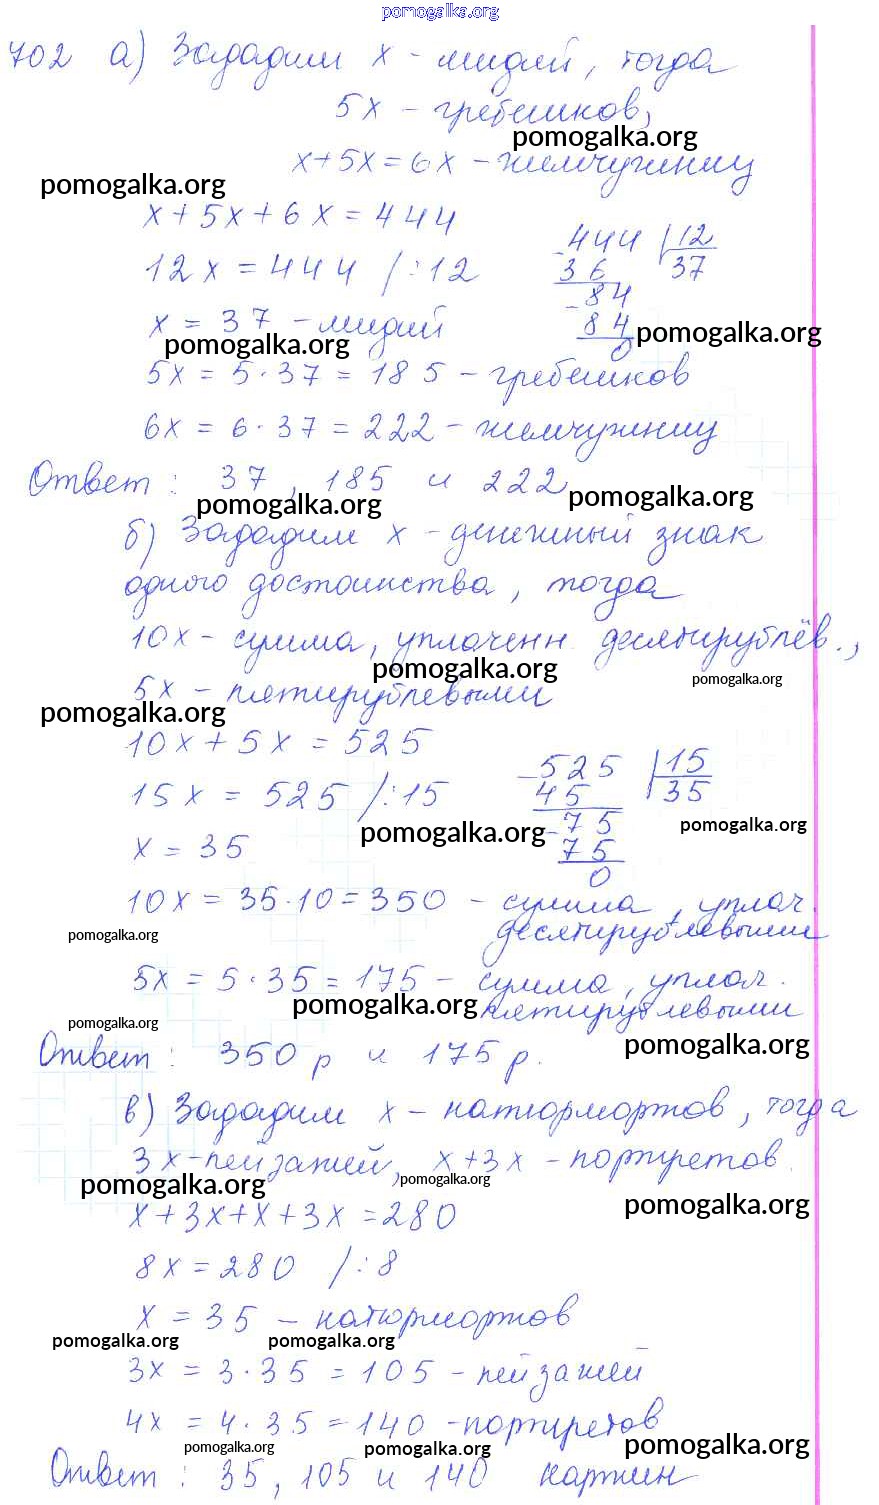 pomogalka.org
702 а) Зададим х - мидий, тогда
5х - гребешков,
pomogalka.org
х+5х=6х - жемчужниц
pomogalka.org
х+5х+6х=444
444 12
12х=444 /:12
36 37
84
х = 37 - мидий
84 pomogalka.org
pomogalka.org
0
5х = 5·37 = 185 - гребешков
6х = 6·37 = 222 - жемчужниц
Ответ: 37, 185 и 222
pomogalka.org pomogalka.org
б) Зададим х - денежный знак
одного достоинства, тогда
10х - сумма, уплаченн. десятирублёв.,
pomogalka.org pomogalka.org
5х - пятирублевыми
pomogalka.org
10х+5х = 525
525 15
15х = 525 /:15
45 35
75
pomogalka.org pomogalka.org
х = 35
75
0
10х = 35·10=350 - сумма, уплач.
десятирублевыми
pomogalka.org
5х = 5·35=175 - сумма, уплач.
pomogalka.org пятирублевыми
pomogalka.org
Ответ: 350 р и 175 р.
pomogalka.org
в) Зададим х - натюрмортов, тогда
3х - пейзажей, х+3х - портретов.
pomogalka.org pomogalka.org
pomogalka.org
х+3х+х+3х=280
8х=280 /:8
х = 35 - натюрмортов
pomogalka.org pomogalka.org
3х = 3·35 = 105 - пейзажей
4х = 4·35=140 - портретов
pomogalka.org pomogalka.org pomogalka.org
Ответ: 35, 105 и 140 картин